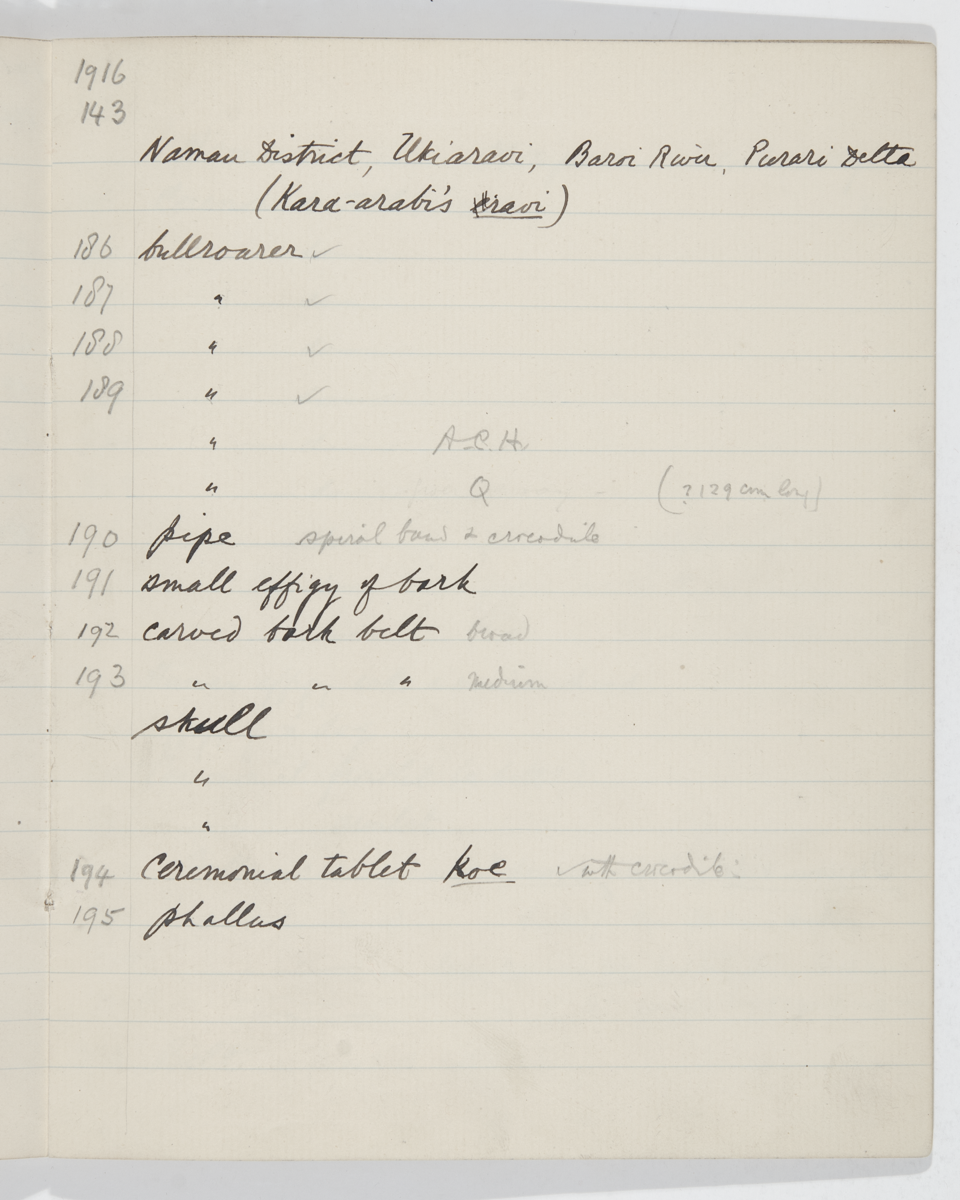 1916
143
Namau District, Ukiaravi, Baroi River, Purari Delta
(Kara-arabi's ravi)
186 bullroarer ✓
187 " ✓
188 " ✓
189 " ✓
" A.C.H.
" Q (? 129 cm long)
190 pipe spiral band & crocodile
191 small effigy of bark
192 carved bark belt broad
193 " " " medium
skull
"
"
194 Ceremonial tablet koe with crocodile
195 phallus